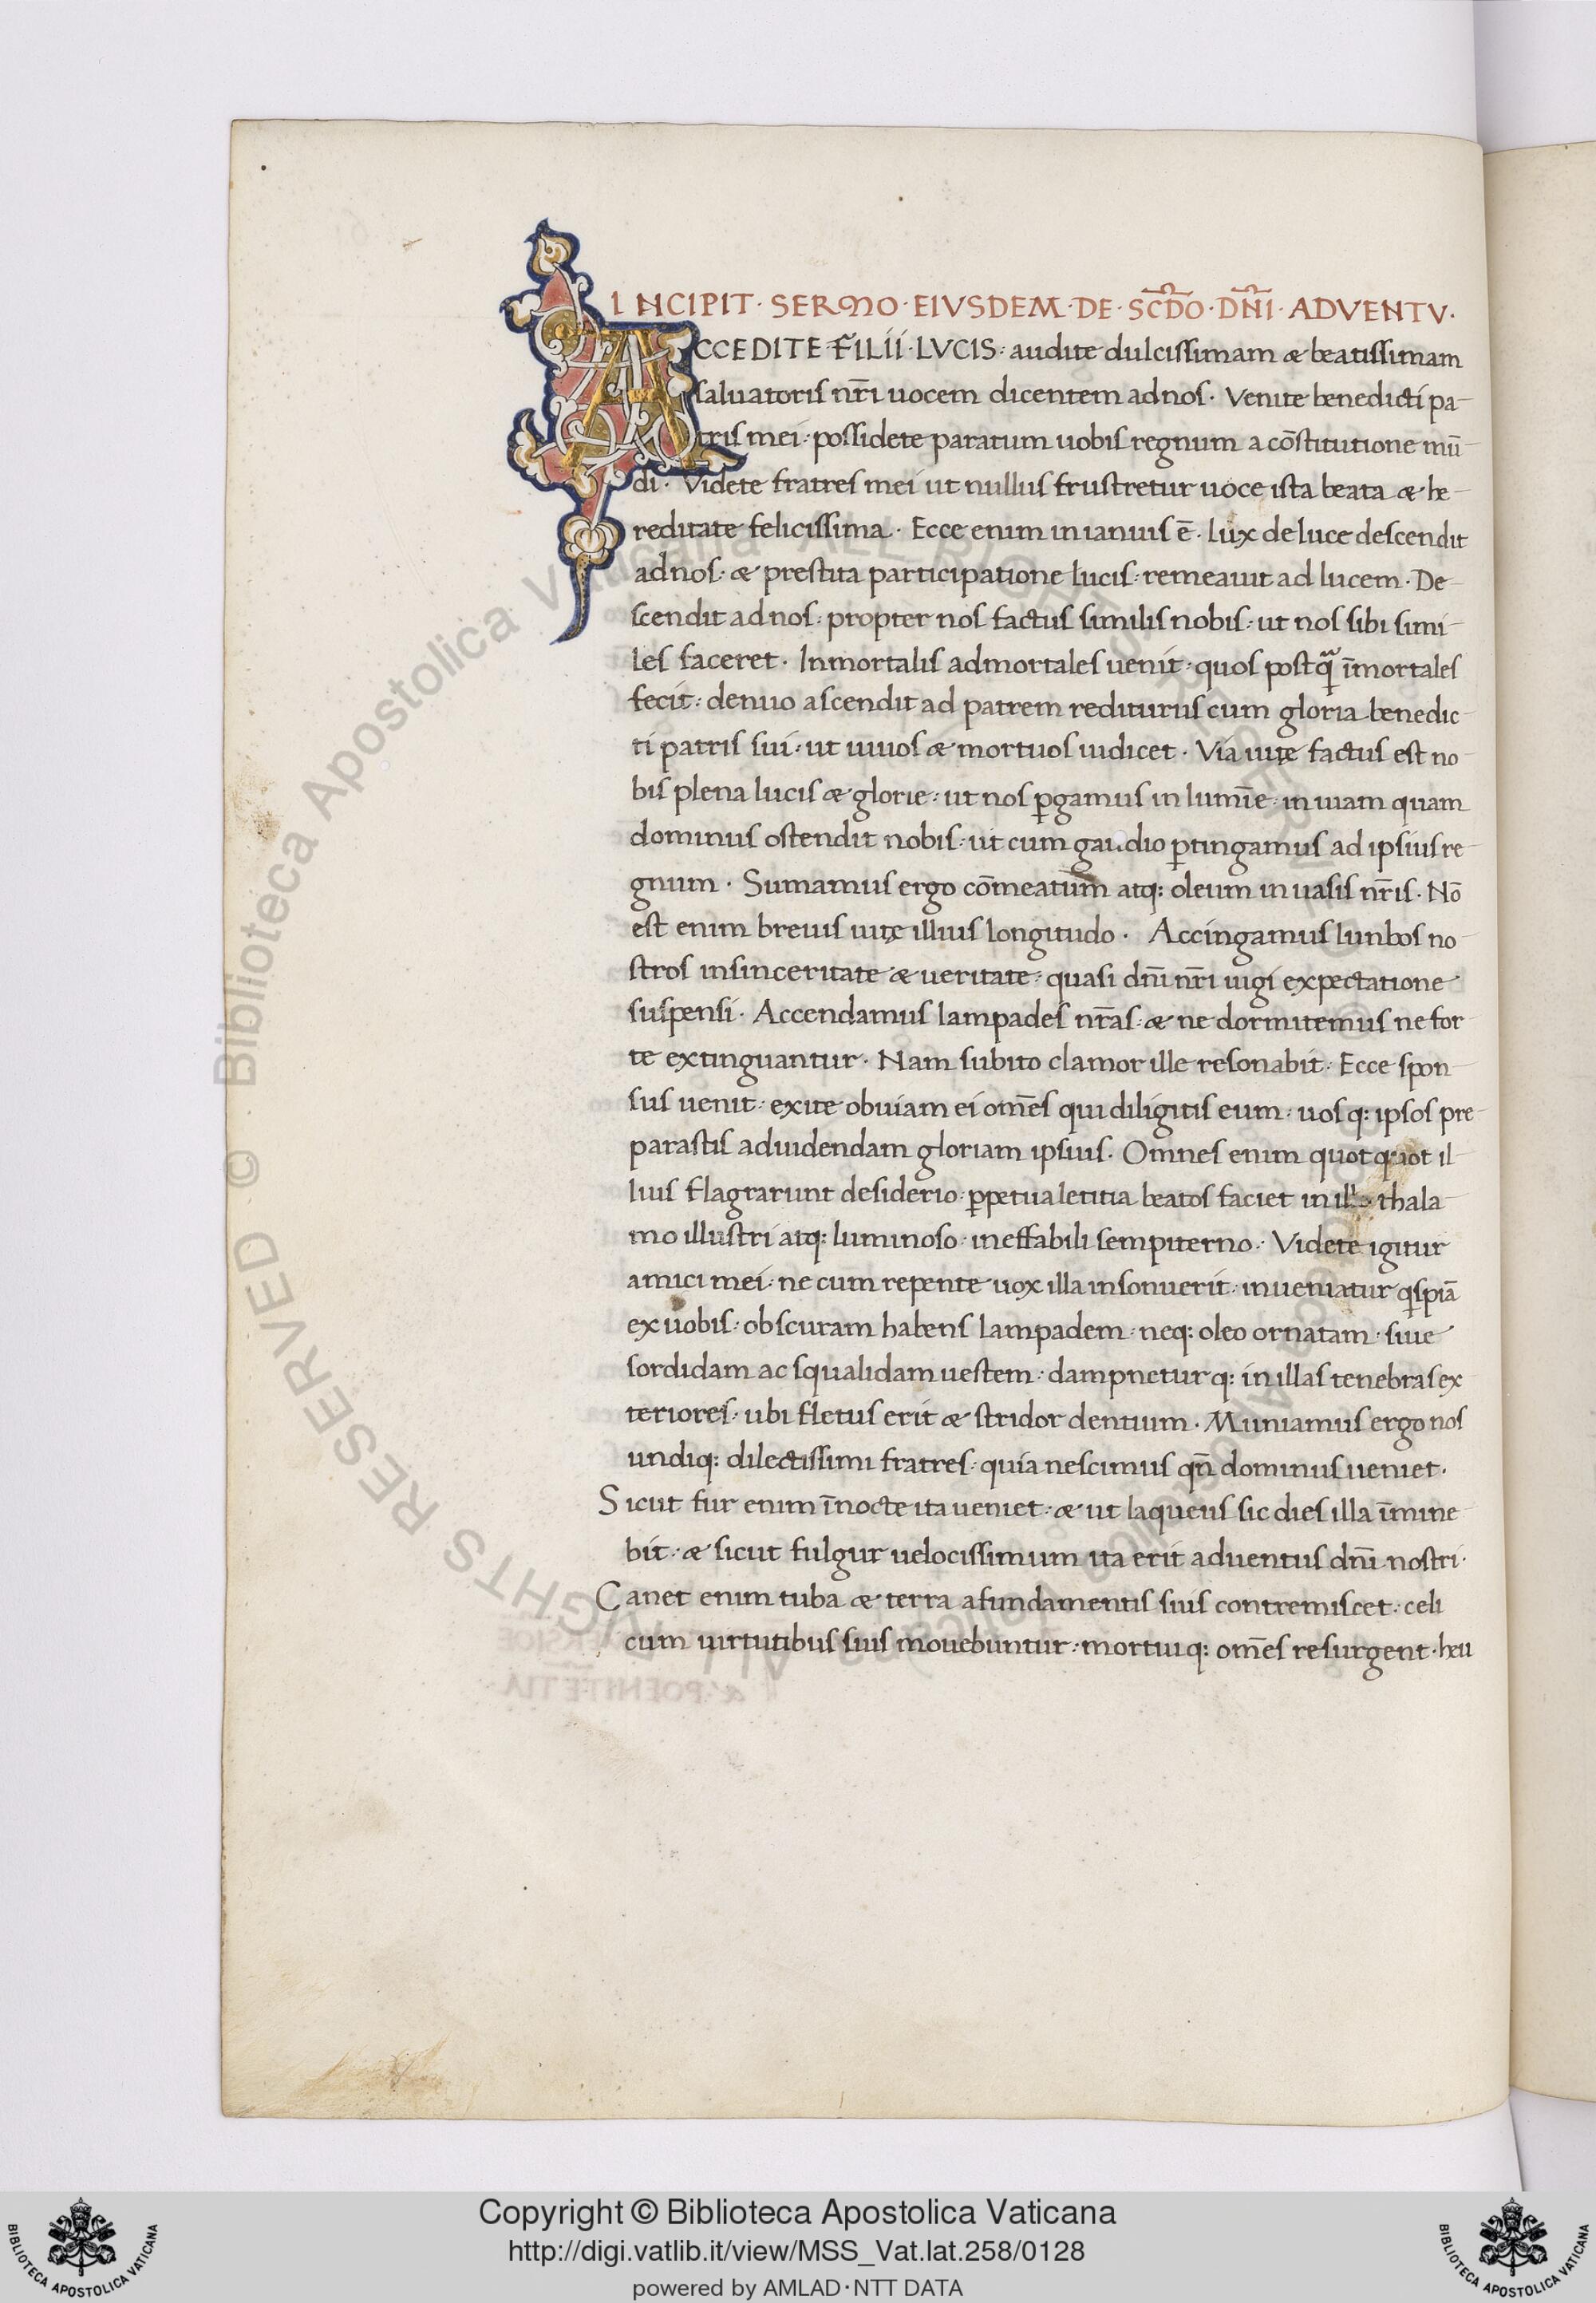 INCIPIT · SERMO · EIVSDEM · DE · SC̅DO · DN̅I · ADVENTV ·
ACCEDITE · FILII · LVCIS : audite dulcissimam & beatissimam
saluatoris nr̅i uocem dicentem ad nos · Venite benedicti pa-
tris mei : possidete paratum uobis regnum a co̅stitutione mu̅-
di · Videte fratres mei ut nullus frustretur uoce ista beata & he-
reditate felicissima · Ecce enim in ianuis e̅ · lux de luce descendit
ad nos : & prestita participatione lucis : remeauit ad lucem · De-
scendit ad nos : propter nos factus similis nobis : ut nos sibi simi-
les faceret · Inmortalis ad mortales uenit : quos postqᷓ i̅mortales
fecit : denuo ascendit ad patrem rediturus cum gloria benedic-
ti patris sui : ut uiuos & mortuos iudicet · Via uitę factus est no-
bis plena lucis & glorie : ut nos ꝑgamus in lumi̅e : in uiam quam
dominus ostendit nobis : ut cum gaudio ꝑtingamus ad ipsius re-
gnum · Sumamus ergo co̅meatum atq: oleum in uasis nr̅is · No̅
est enim breuis uitę illius longitudo · Accingamus lunbos no-
stros in sinceritate & ueritate : quasi dn̅i nr̅i uigi expectatione
suspensi · Accendamus lampades nr̅as : & ne dormitemus ne for-
te extinguantur · Nam subito clamor ille resonabit : Ecce spon-
sus uenit : exite obuiam ei om̅es qui diligitis eum : uosq: ipsos pre-
parastis ad uidendam gloriam ipsius · Omnes enim quotquot il-
lius flagrarunt desiderio : ꝑpetua letitia beatos faciet in illo thala-
mo illustri atq: luminoso : ineffabili sempiterno · Videte igitur
amici mei : ne cum repente uox illa insonuerit : inueniatur qͥspia̅
ex uobis : obscuram habens lampadem : neq: oleo ornatam : siue
sordidam ac squalidam uestem : dampneturq: in illas tenebras ex-
teriores : ubi fletus erit & stridor dentium · Muniamus ergo nos
undiq: dilectissimi fratres : quia nescimus qn̅ dominus ueniet ·
Sicut fur enim i̅ nocte ita ueniet : & ut laqueus sic dies illa i̅mine-
bit : & sicut fulgur uelocissimum ita erit aduentus dn̅i nostri ·
Canet enim tuba & terra a fundamentis suis contremiscet : celi
cum uirtutibus suis mouebuntur : mortuiq: om̅es resurgent · heu
© Biblioteca Apostolica Vaticana ALL RIGHTS RESERVED
Copyright © Biblioteca Apostolica Vaticana
http://digi.vatlib.it/view/MSS_Vat.lat.258/0128
powered by AMLAD·NTT DATA
BIBLIOTECA APOSTOLICA VATICANA
BIBLIOTECA APOSTOLICA VATICANA